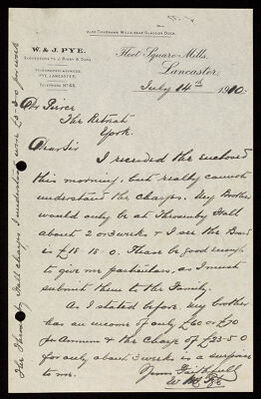 ALSO THURNHAM MILLS NEAR GLASSON DOCK.
W. & J. PYE.
SUCCESSORS TO J. RIGBY & SONS
TELEGRAPHIC ADDRESS
PYE, LANCASTER.
TELEPHONE No 63.
Fleet Square Mills,
Lancaster,
July 14th 1910.
Dr Pierce
The Retreat
York
Dear Sir
I received the enclosed
this morning, but really cannot
understand the charges. My Brother
would only be at Throxenby Hall
about 2 or 3 weeks & I see the Board
is £15 15 0. Please be good enough
to give me particulars, as I must
submit them to the Family.
As I stated before, my brother
has an income of only £60 or £70
per Annum & the charge of £23-5-0
for only about 3 weeks is a surprise
to me.
Yours Faithfully
W. Pye
The Throxenby Hall charges I understood were £3-3-0 per week